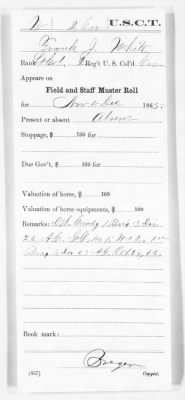 W 2 Cav U.S.C.T.
Frank J. White
Rank Lt Col, 2 Reg't U.S. Col'd Cav
Appears on
Field and Staff Muster Roll
for Nov & Dec 1865.
Present or absent Absent
Stoppage, $ 100 for
Due Gov't, $ 100 for
Valuation of horse, $ 100
Valuation of horse equipments, $ 100
Remarks: 1 Brig 3 Div
25 A.C.
Brig 3 Div 25 A.C. Oct
Book mark:
(857) Copyist.